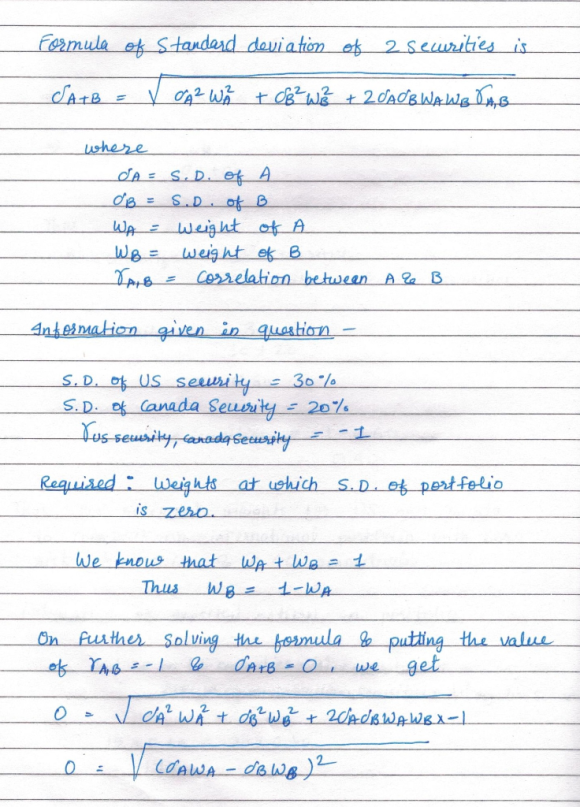 Formula of Standard deviation of 2 securities is
σA+B = √ σA² WA² + σB² WB² + 2σAσB WA WB rA,B
where
σA = S.D. of A
σB = S.D. of B
WA = weight of A
WB = weight of B
rA,B = Correlation between A & B
Information given in question -
S.D. of US security = 30%
S.D. of Canada Security = 20%
rUS security, Canada Security = -1
Required : Weights at which S.D. of portfolio
is zero.
We know that WA + WB = 1
Thus WB = 1-WA
On further solving the formula & putting the value
of rAB = -1 & σA+B = 0, we get
0 = √ σA² WA² + σB² WB² + 2σAσB WA WB x -1
0 = √ (σAWA - σBWB)²